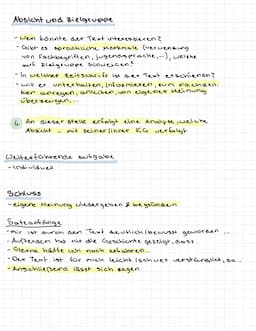 Absicht und Zielgruppe
- Wen könnte der Text interessieren?
- Gibt es sprachliche Merkmale (Verwendung
von Fachbegriffen, Jugendsprache,...), welche
auf Zielgruppe hinweisen?
- In welcher Zeitschrift ist der Text erschienen?
- will er unterhalten, informieren, zum nachden-
ken anregen, anleiten, von eigener Meinung
überzeugen,...
An dieser Stelle erfolgt eine Analyse, welche
Absicht mit seiner/ihrer verfolgt
Weiterführende Aufgabe
- individuell
Schluss
- eigene Meinung wiedergeben & begründen
Satzanfänge
- Mir ist durch den Text deutlich/bewusst geworden ...
- Außerdem hat mir die Geschichte gezeigt, dass
- Gerne hätte ich noch erfahren...
- Der Text ist für mich leicht/schwer verständlich, da...
- Anschließend lässt sich sagen